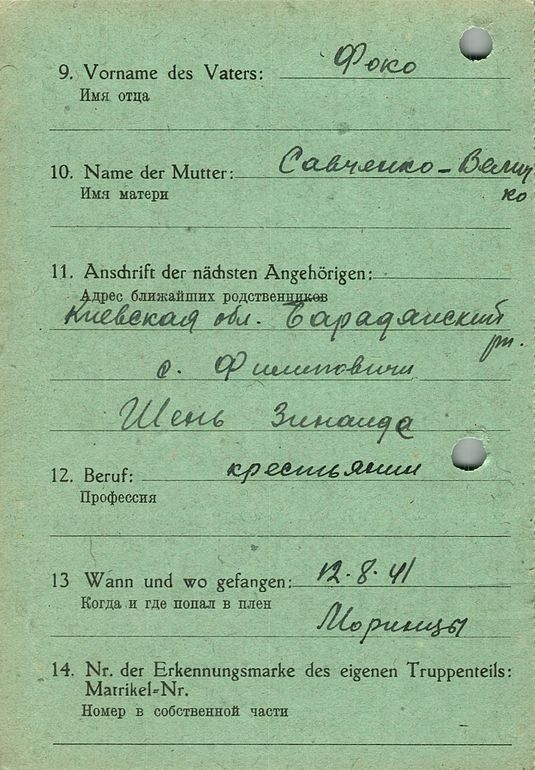 9. Vorname des Vaters: Фоко
Имя отца
10. Name der Mutter: Савченко-Велич
Имя матери ко
11. Anschrift der nächsten Angehörigen:
Адрес ближайших родственников
Киевская обл. Барадянский
рн.
с. Филиповичи
Шень Зинаида
12. Beruf: крестьянин
Профессия
13 Wann und wo gefangen: 12.8.41
Когда и где попал в плен
Моринцы
14. Nr. der Erkennungsmarke des eigenen Truppenteils:
Matrikel-Nr.
Номер в собственной части